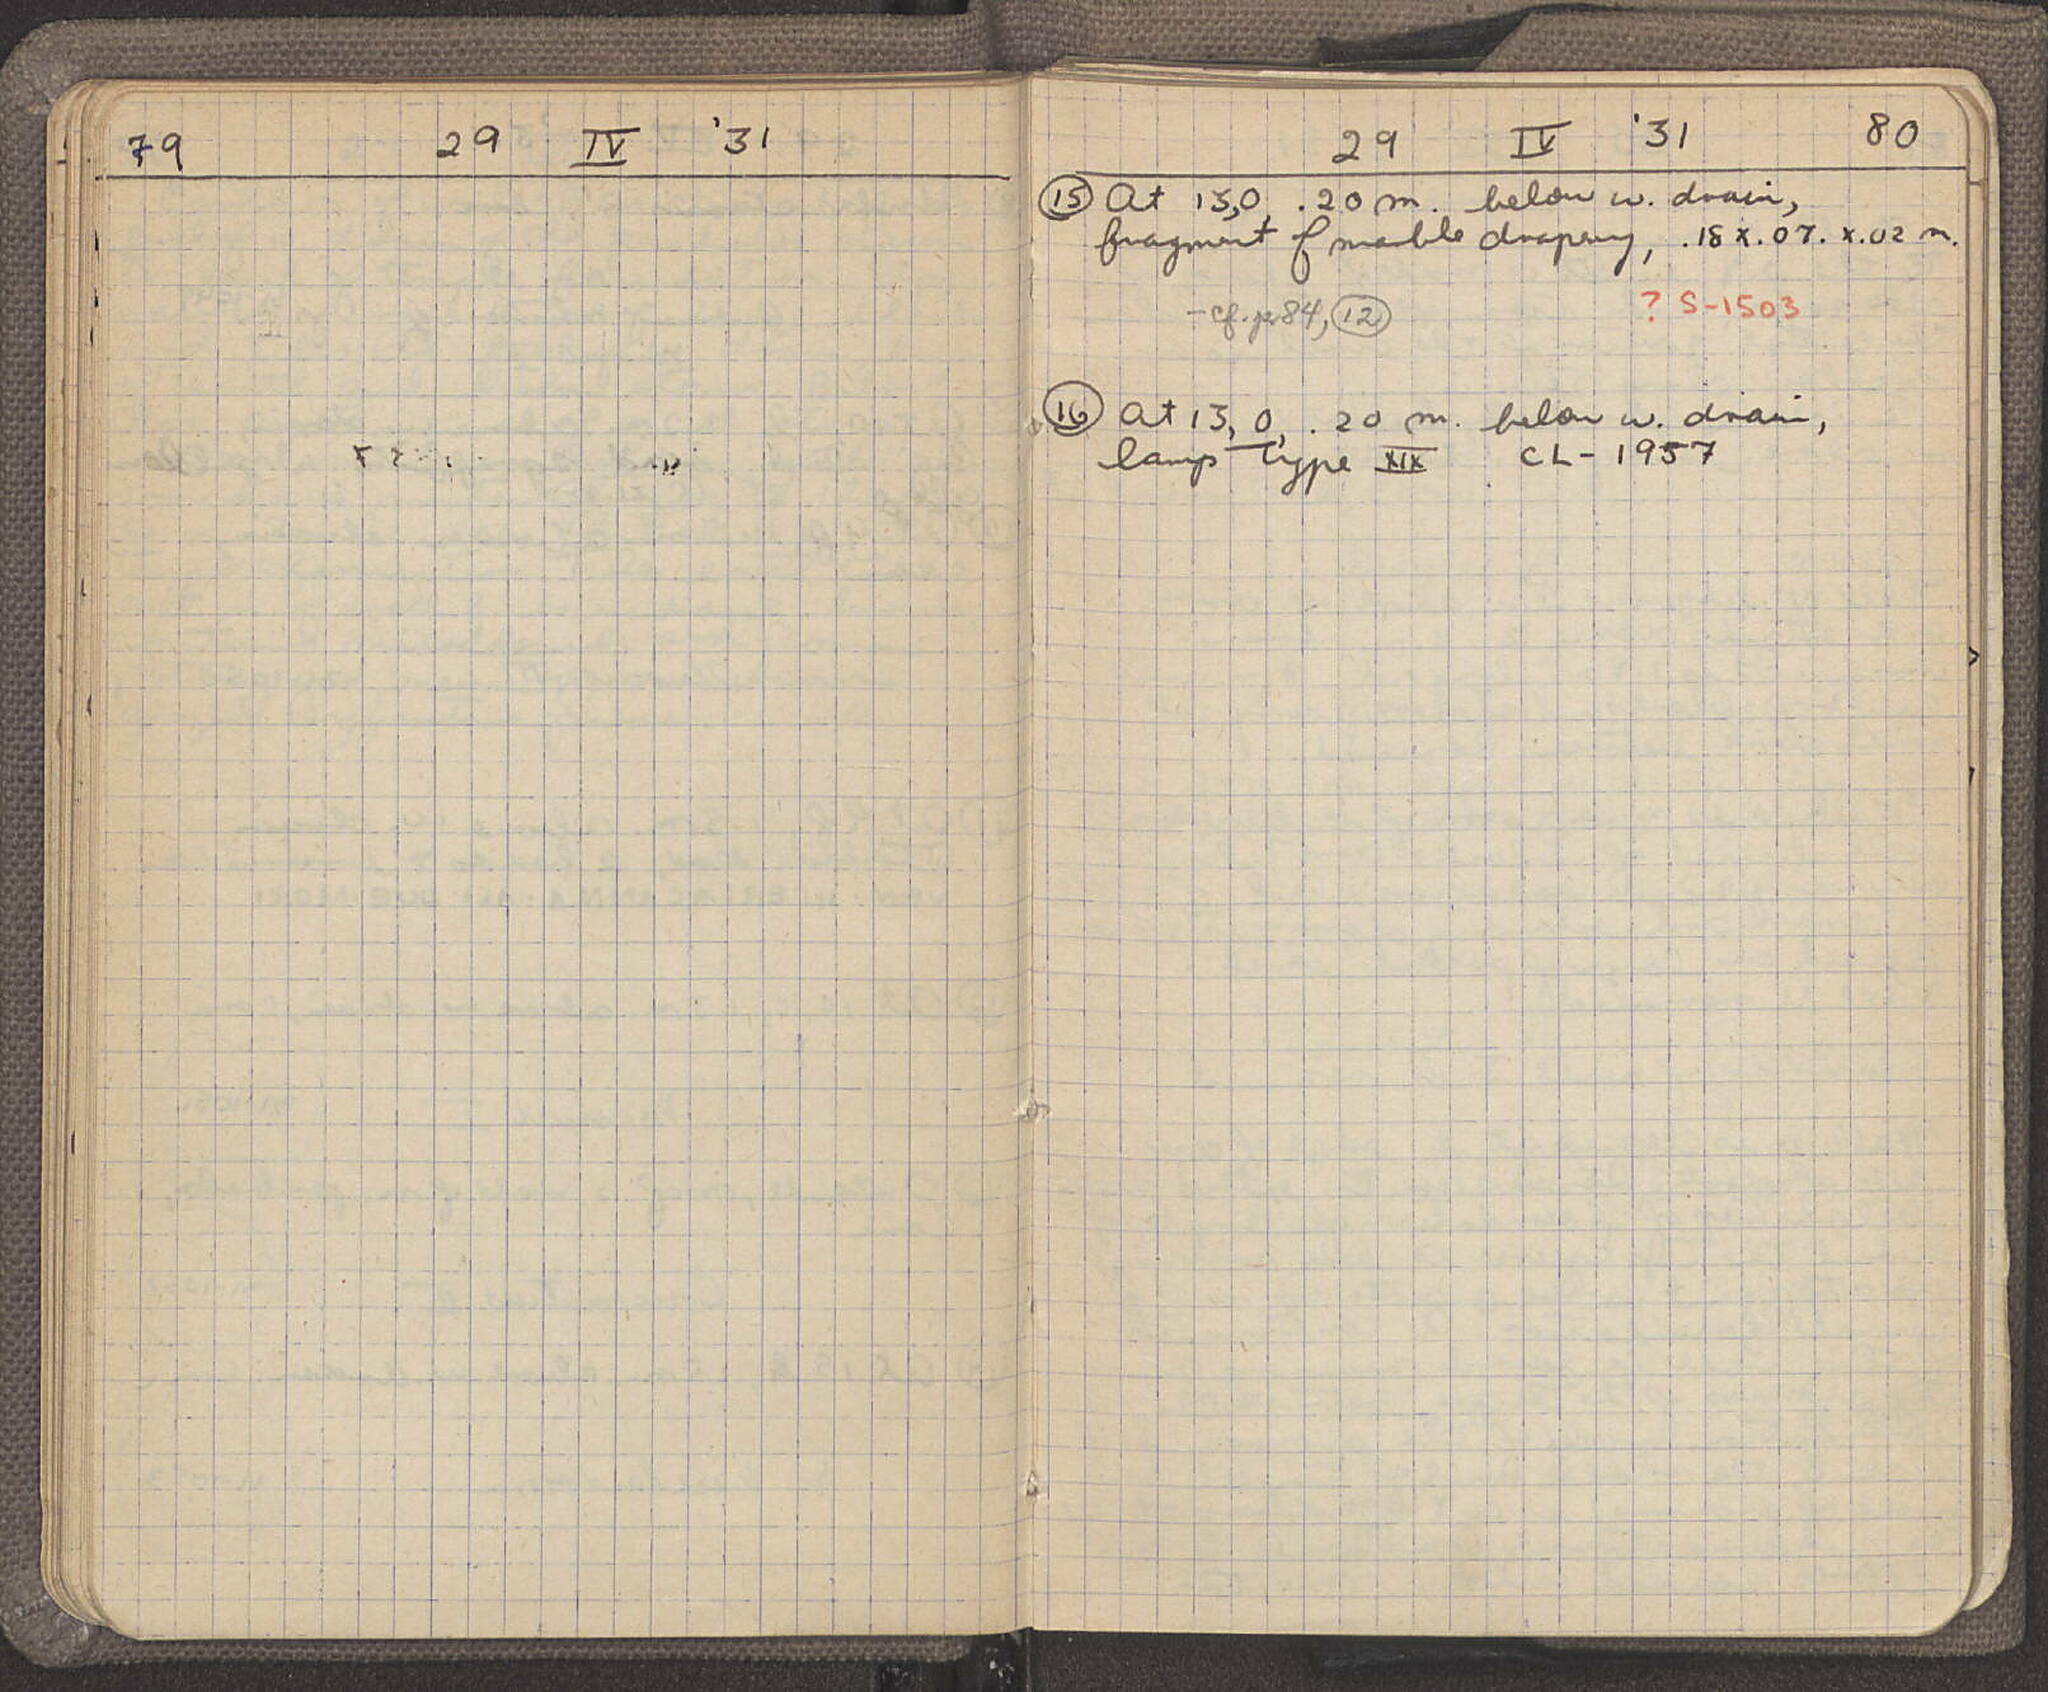 79 29 IV '31
29 IV '31 80
15 At 15,0, .20 m. below w. drain,
fragment of marble drapery, .18 x .07. x .02 m.
- cf. p. 84, 12
? S-1503
16 At 15, 0, .20 m. below w. drain,
lamp Type XIX CL - 1957